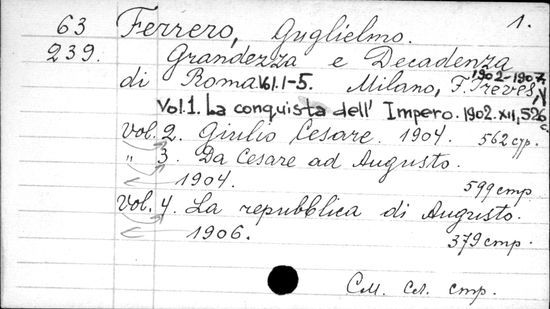 63 Ferrero, Guglielmo. 1.
239. Grandezza e Decadenza
di Roma. Vol. 1-5. Milano, F. Treves, 1902-1907, V
Vol. 1. La conquista dell' Impero. 1902. XII, 526 c
Vol. 2. Giulio Cesare. 1904. 562 cтp.
„ 3. Da Cesare ad Augusto.
1904. 599 cmp
Vol. 4. La repubblica di Augusto.
1906. 379 cmp.
См. сл. cmp.